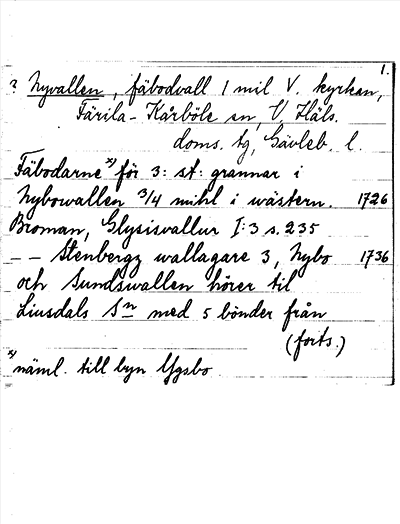 1.
? Nyvallen, fäbodvall 1 mil V. kyrkan,
Färila-Kårböle sn, V. Häls.
doms. tg, Gävleb. l.
Fäbodarne x) för 3: st: grannar i
Nybowallen 3/4 mihl i wästern. 1726
Broman, Glysisvallur I:3 s. 235
– – Stenbergz wallagare 3, Nybo 1736
och Sundswallen hörer till
Liusdals Sn med 5 bönder från
(forts.)
x) näml. till byn Ygsbo